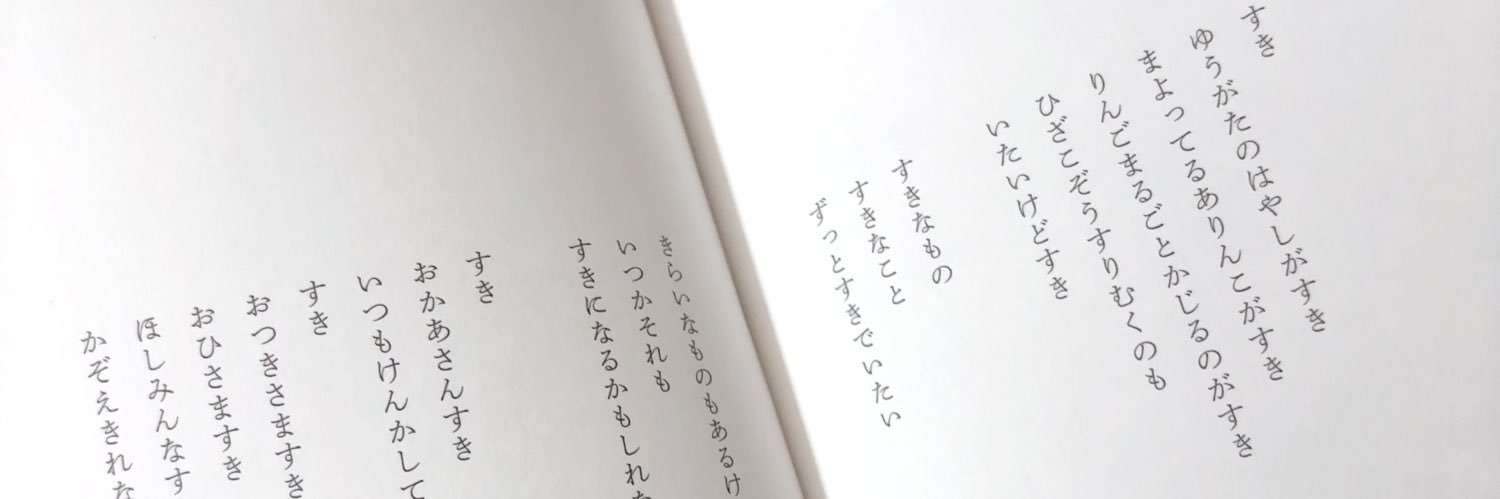 すき
ゆうがたのはやしがすき
まよってるありんこがすき
りんごまるごとかじるのがすき
ひざこぞうすりむくのも
いたいけどすき
すきなもの
すきなこと
ずっとすきでいたい
きらいなものもあるけ
いつかそれも
すきになるかもしれな
すき
おかあさんすき
いつもけんかして
すき
おつきさますき
おひさますき
ほしみんなす
かぞえきれな